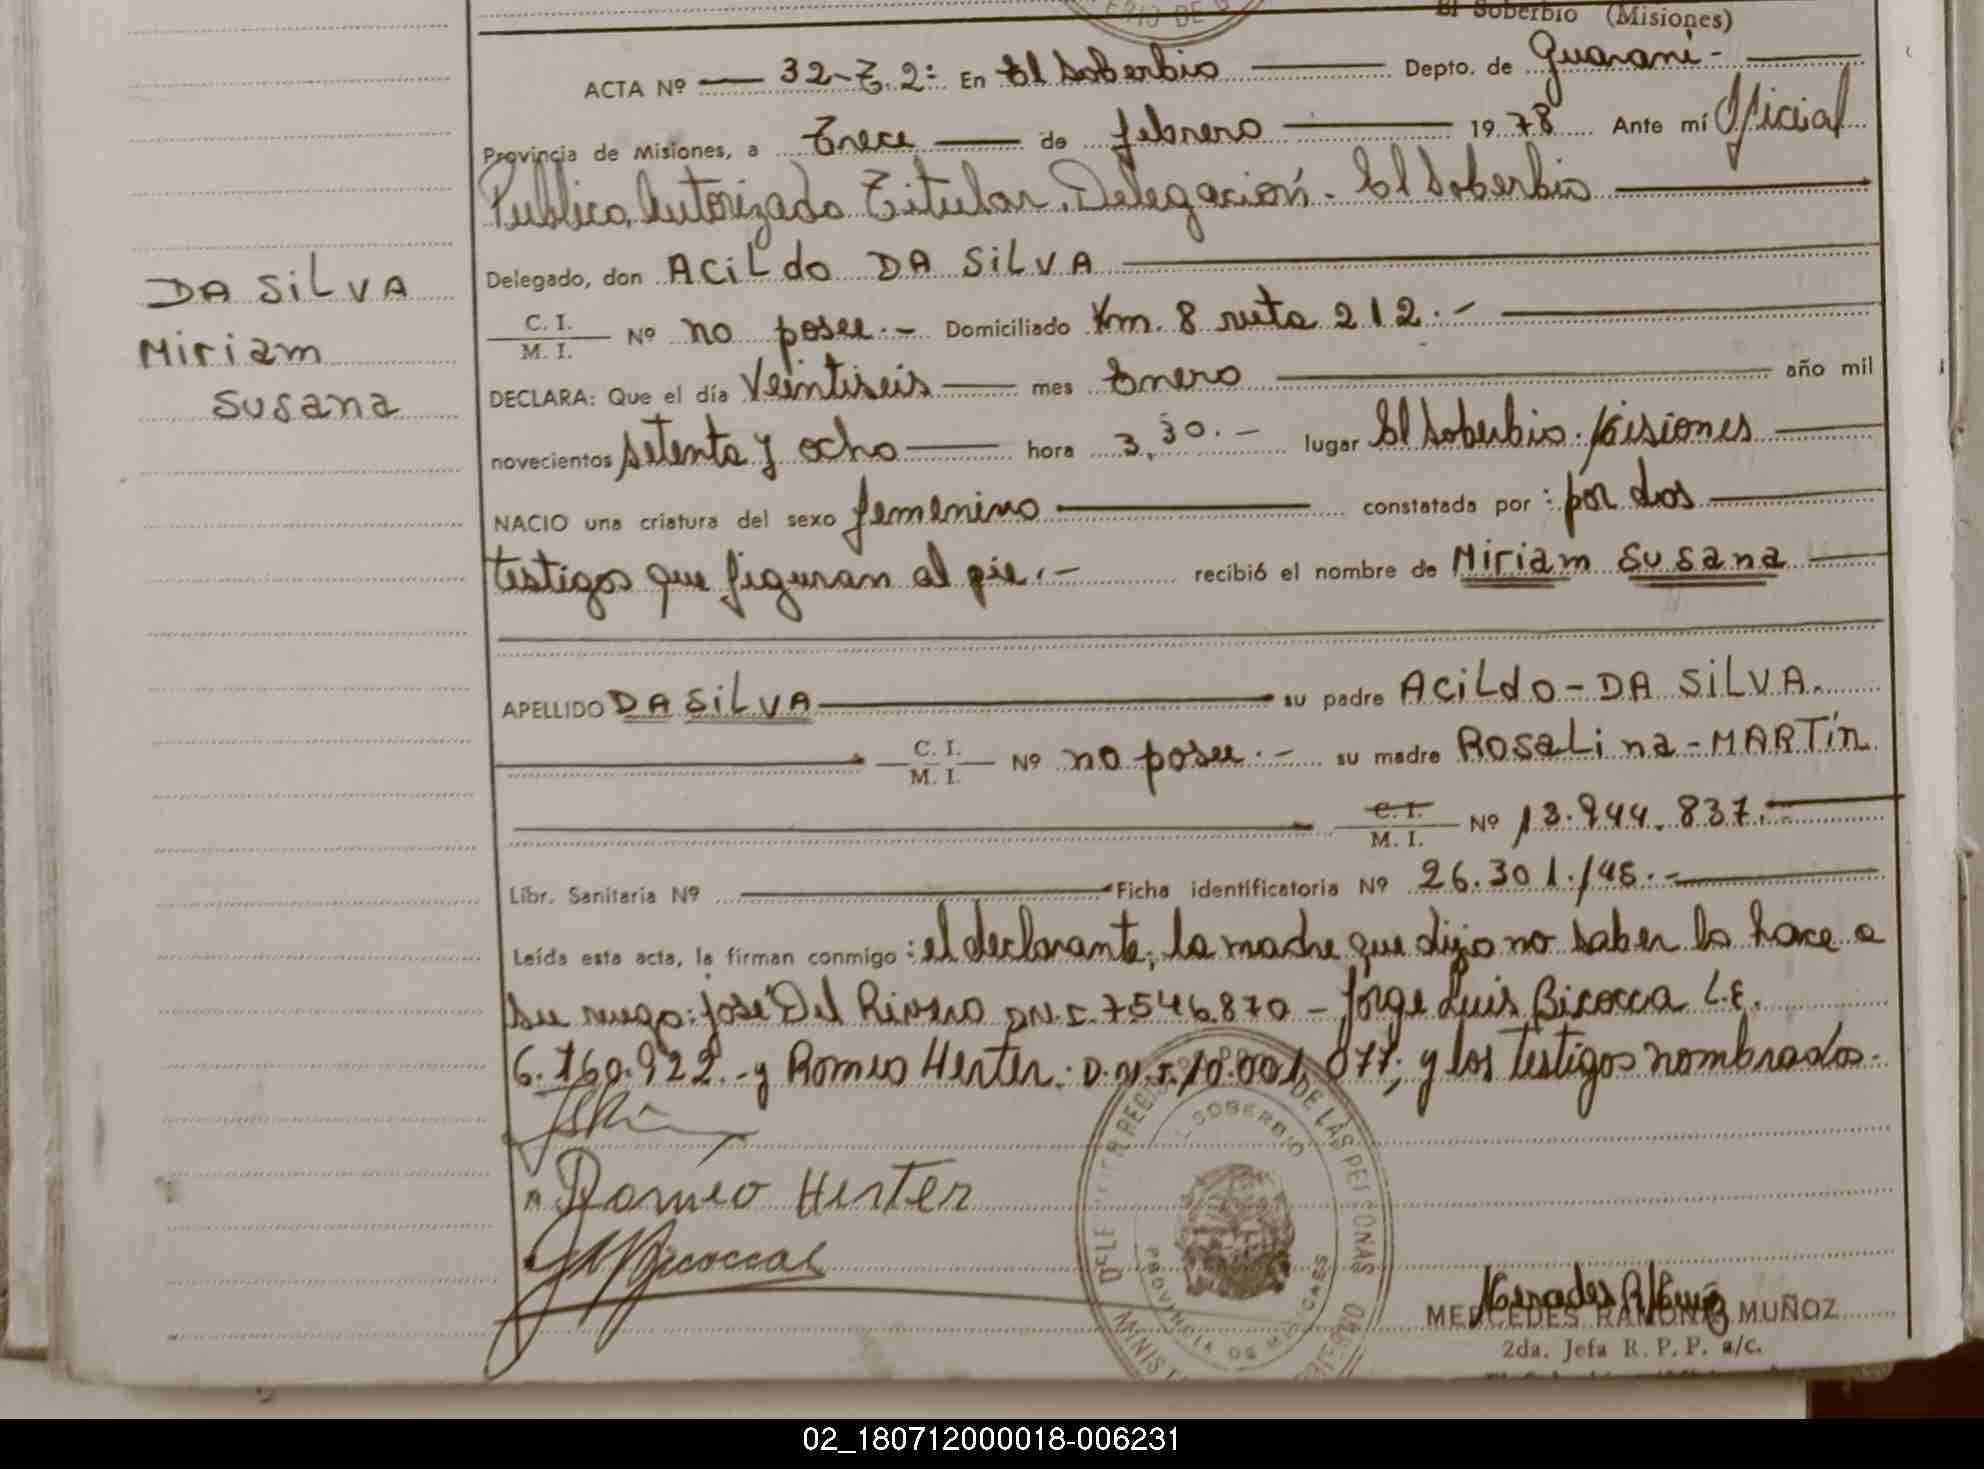 El Soberbio (Misiones)
ACTA Nº 32-T.2: En El Soberbio Depto. de Guaraní-
Provincia de Misiones, a Trece de febrero 1978 Ante mí Oficial
Publico Autorizado Titular. Delegación - El Soberbio
Delegado, don ACiLdo DA SiLVA
C. I. / M. I. Nº no posee.- Domiciliado Km. 8 ruta 212.-
DECLARA: Que el día Veintiseis mes Enero año mil
novecientos setenta y ocho hora 3,30.- lugar El Soberbio. Misiones
NACIO una criatura del sexo femenino constatada por : por dos
testigos que figuran al pie.- recibió el nombre de Miriam Susana
APELLIDO DA SiLVA su padre ACiLdo-DA SiLVA.
C. I. / M. I. Nº no posee.- su madre ROSALina-MARTín
C. I. / M. I. Nº 13.944.837.-
Libr. Sanitaria Nº Ficha identificatoria Nº 26.301./45.-
Leída esta acta, la firman conmigo : el declarante, la madre que dijo no saber lo hace a
su ruego: José Del Rivero D.N.I. 7.546.870 - Jorge Luis Bicocca L.E.
6.760.922.- y Romeo Herter. D.N.I. 10.001.077; y los testigos nombrados.-
Romeo Herter
MERCEDES RAMONA MUÑOZ
2da. Jefa R. P. P. a/c.
DA SiLVA
Miriam
Susana
SOBERBIO
DE LAS PERSONAS
PROVINCIA DE MISIONES
02_180712000018-006231